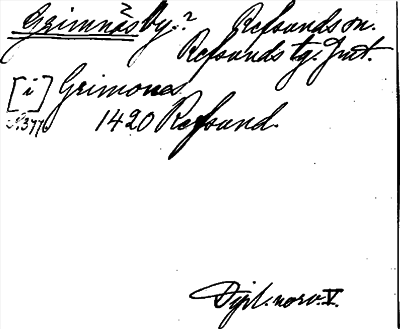 Grimnäs by.? Refsunds sn.
Refsunds tg. Jmt.
[i] Grimones
1420 Refsund.
Dipl. norv. V.